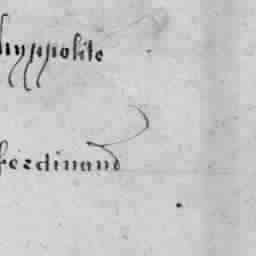 hyppolite
ferdinand